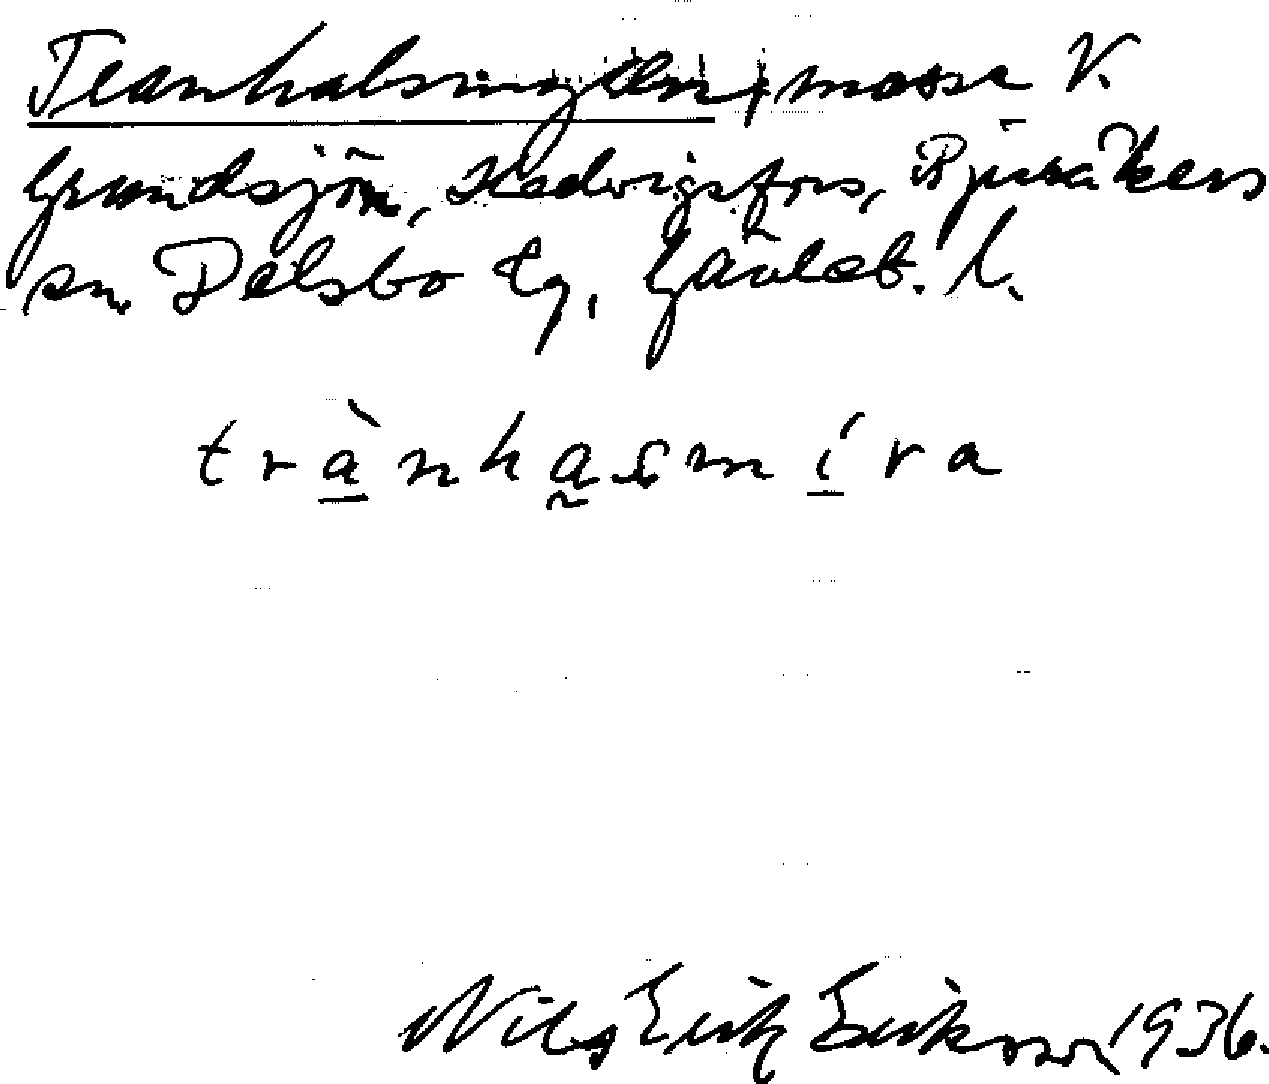 Tranhalsmyren, mosse V.
Grundsjön, Hedvigsfors, Bjuråkers
sn. Delsbo tg, Gävleb. l.
trànhasmíra
Nils Erik Erikson 1936.